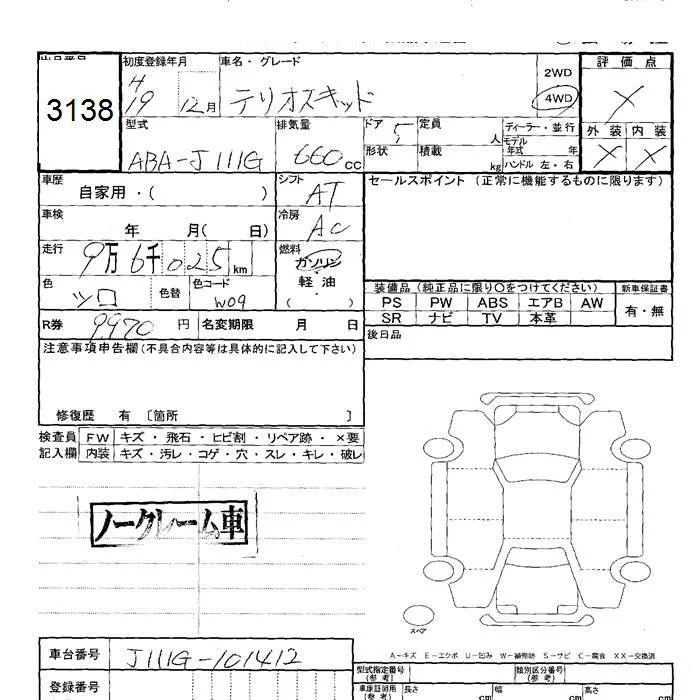 初度登録年月
車名・グレード
H19 12月
テリオスキッド
2WD
4WD
評価点
×
外装 内装
× ×
3138
型式
ABA-J111G
排気量
660cc
ドア 5
定員 人
ディーラー・並行
モデル年式 年
形状
積載 kg
ハンドル 左・右
車歴
自家用・( )
シフト
AT
セールスポイント (正常に機能するものに限ります)
車検
年 月( 日)
冷房
AC
走行
9万6千025km
燃料
ガソリン
軽油
( )
色
シロ
色替
色コード
W09
装備品 (純正品に限り○をつけてください)
新車保証書
PS PW ABS エアB AW
有・無
SR ナビ TV 本革
R券
9,970円
名変期限 月 日
後日品
注意事項申告欄(不具合内容等は具体的に記入して下さい)
修復歴 有 〔箇所 〕
検査員記入欄
FW キズ・飛石・ヒビ割・リペア跡・×要
内装 キズ・汚レ・コゲ・穴・スレ・キレ・破レ
ノークレーム車
スペア
A－キズ E－エクボ U－凹み W－補修跡 S－サビ C－腐食 XX－交換済
車台番号
J111G-101412
型式指定番号(参考)
類別区分番号(参考)
登録番号
車庫証明用(参考)
長さ cm
幅 cm
高さ cm